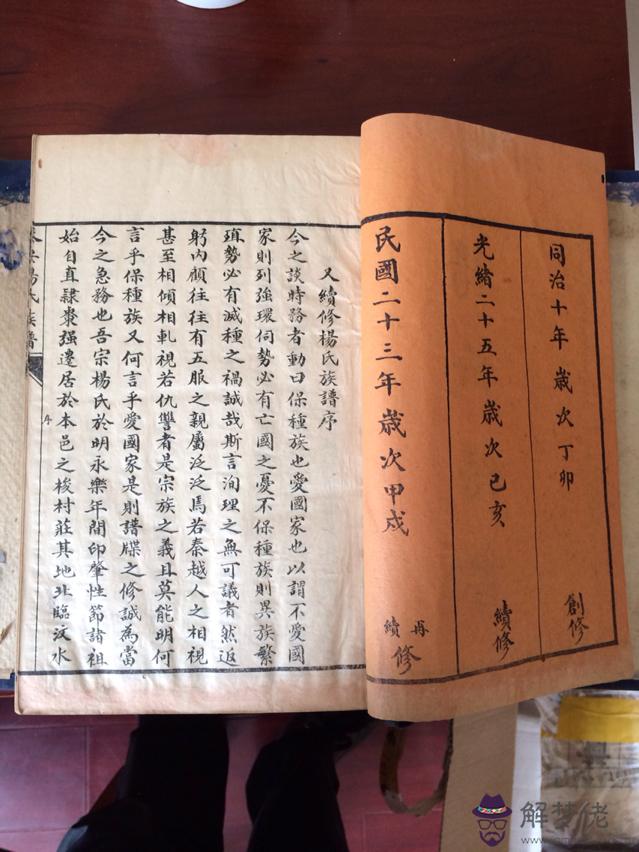 同治十年歲次丁卯 創修
光緒二十五年歲次己亥 續修
民國二十三年歲次甲戌 再續修
又續修楊氏族譜序
今之談時務者動曰保種族也愛國家也以謂不愛國
家則列強環伺勢必有亡國之憂不保種族則異族繁
殖勢必有滅種之禍誠哉斯言洵理之無可議者然返
躬內顧往往有五服之親屬泛泛焉若秦越人之相視
甚至相傾相軋視若仇讐者是宗族之義且莫能明何
言乎保種族又何言乎愛國家是則譜牒之修誠為當
今之急務也吾宗楊氏於明永樂年間印肇性節諸祖
始自直隸棗强遷居於本邑之梭村莊其地北臨汶水
楊氏族譜
序
解梦佬